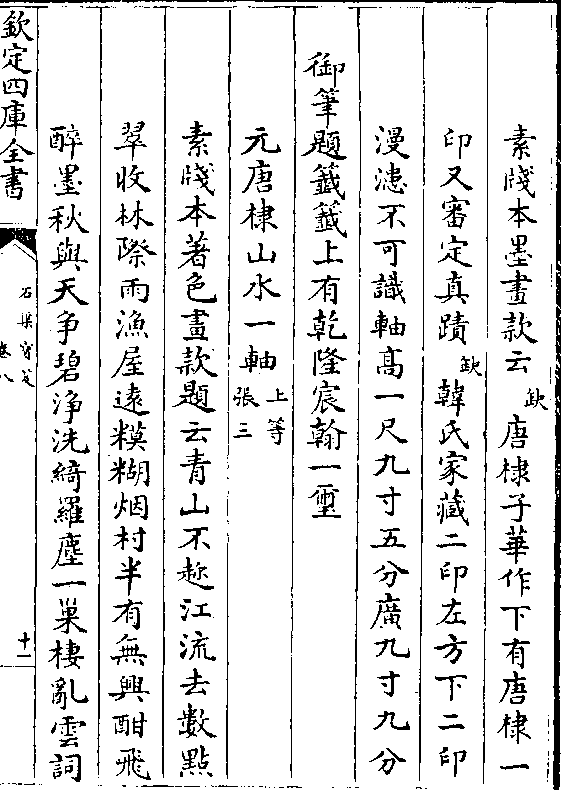 素牋本墨畫款云缺唐棣子華作下有唐棣一
印又審定真蹟缺韓氏家藏二印左方下二印
漫漶不可識軸髙一尺九寸五分廣九寸九分
御筆題籤籤上有乾隆宸翰一璽
元唐棣山水一軸上等張三
素牋本著色畫款題云青山不趂江流去數點
翠收林際雨漁屋逺糢糊烟村半有無興酣飛
醉墨秋與天争碧浄洗綺羅塵一巢棲亂雲詞
欽定四庫全書
石渠寳笈
卷八
十一